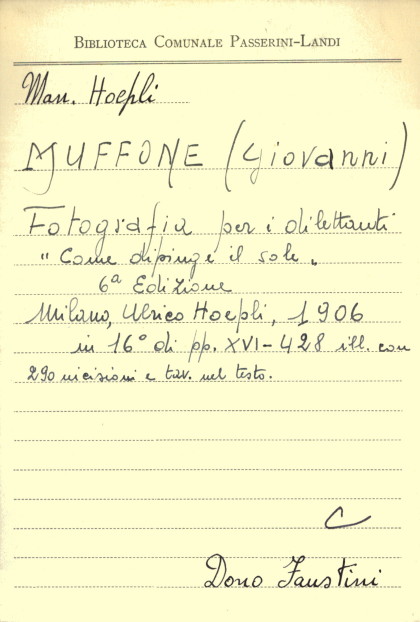 BIBLIOTECA COMUNALE PASSERINI-LANDI
Man. Hoepli
MUFFONE (Giovanni)
Fotografia per i dilettanti
"Come dipinge il sole"
6a Edizione
Milano, Ulrico Hoepli, 1906
in 16° di pp. XVI-428 ill. con
290 incisioni e tav. nel testo.
C
Dono Faustini